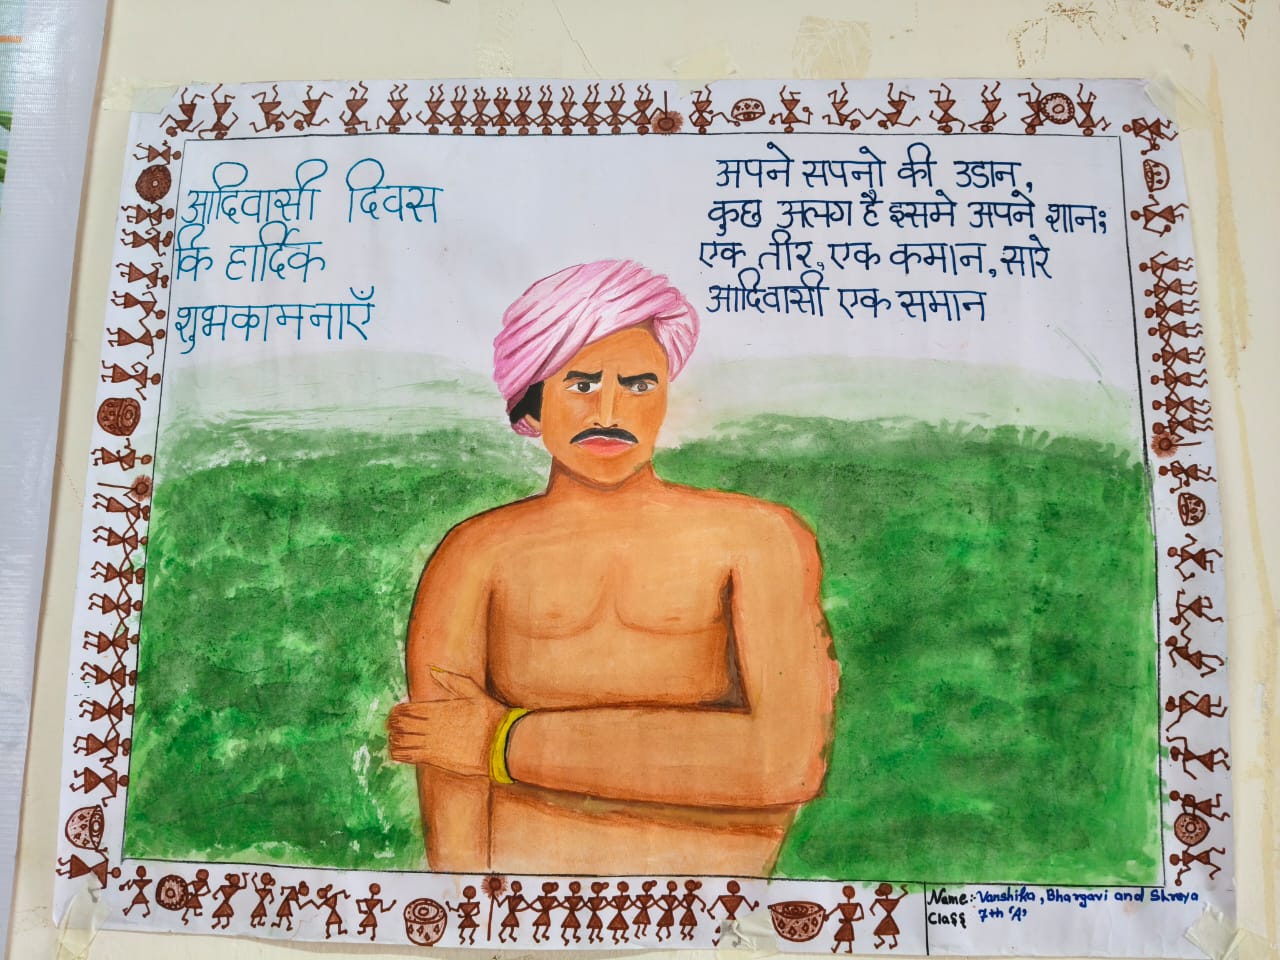 आदिवासी दिवस
कि हार्दिक
शुभकामनाएँ
अपने सपनो की उडान,
कुछ अलग है इसमे अपने शान;
एक तीर, एक कमान, सारे
आदिवासी एक समान
Name:- Vanshika, Bhargavi and Shreya
Class 7th 'A'